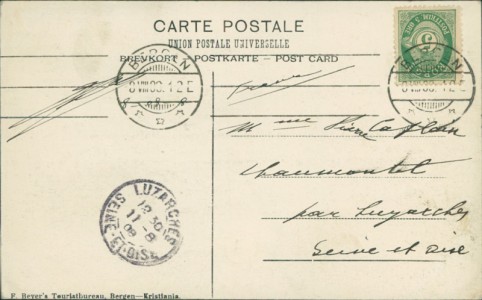 CARTE POSTALE
UNION POSTALE UNIVERSELLE
BREVKORT – POSTKARTE – POST CARD
BERGEN
BERGEN
Mme Pierre
Chaumontel
par Luzarches
Seine et Oise
LUZARCHES
12 30
11 - 8
09
SEINE-ET-OISE
F. Beyer's Touristbureau, Bergen—Kristiania.